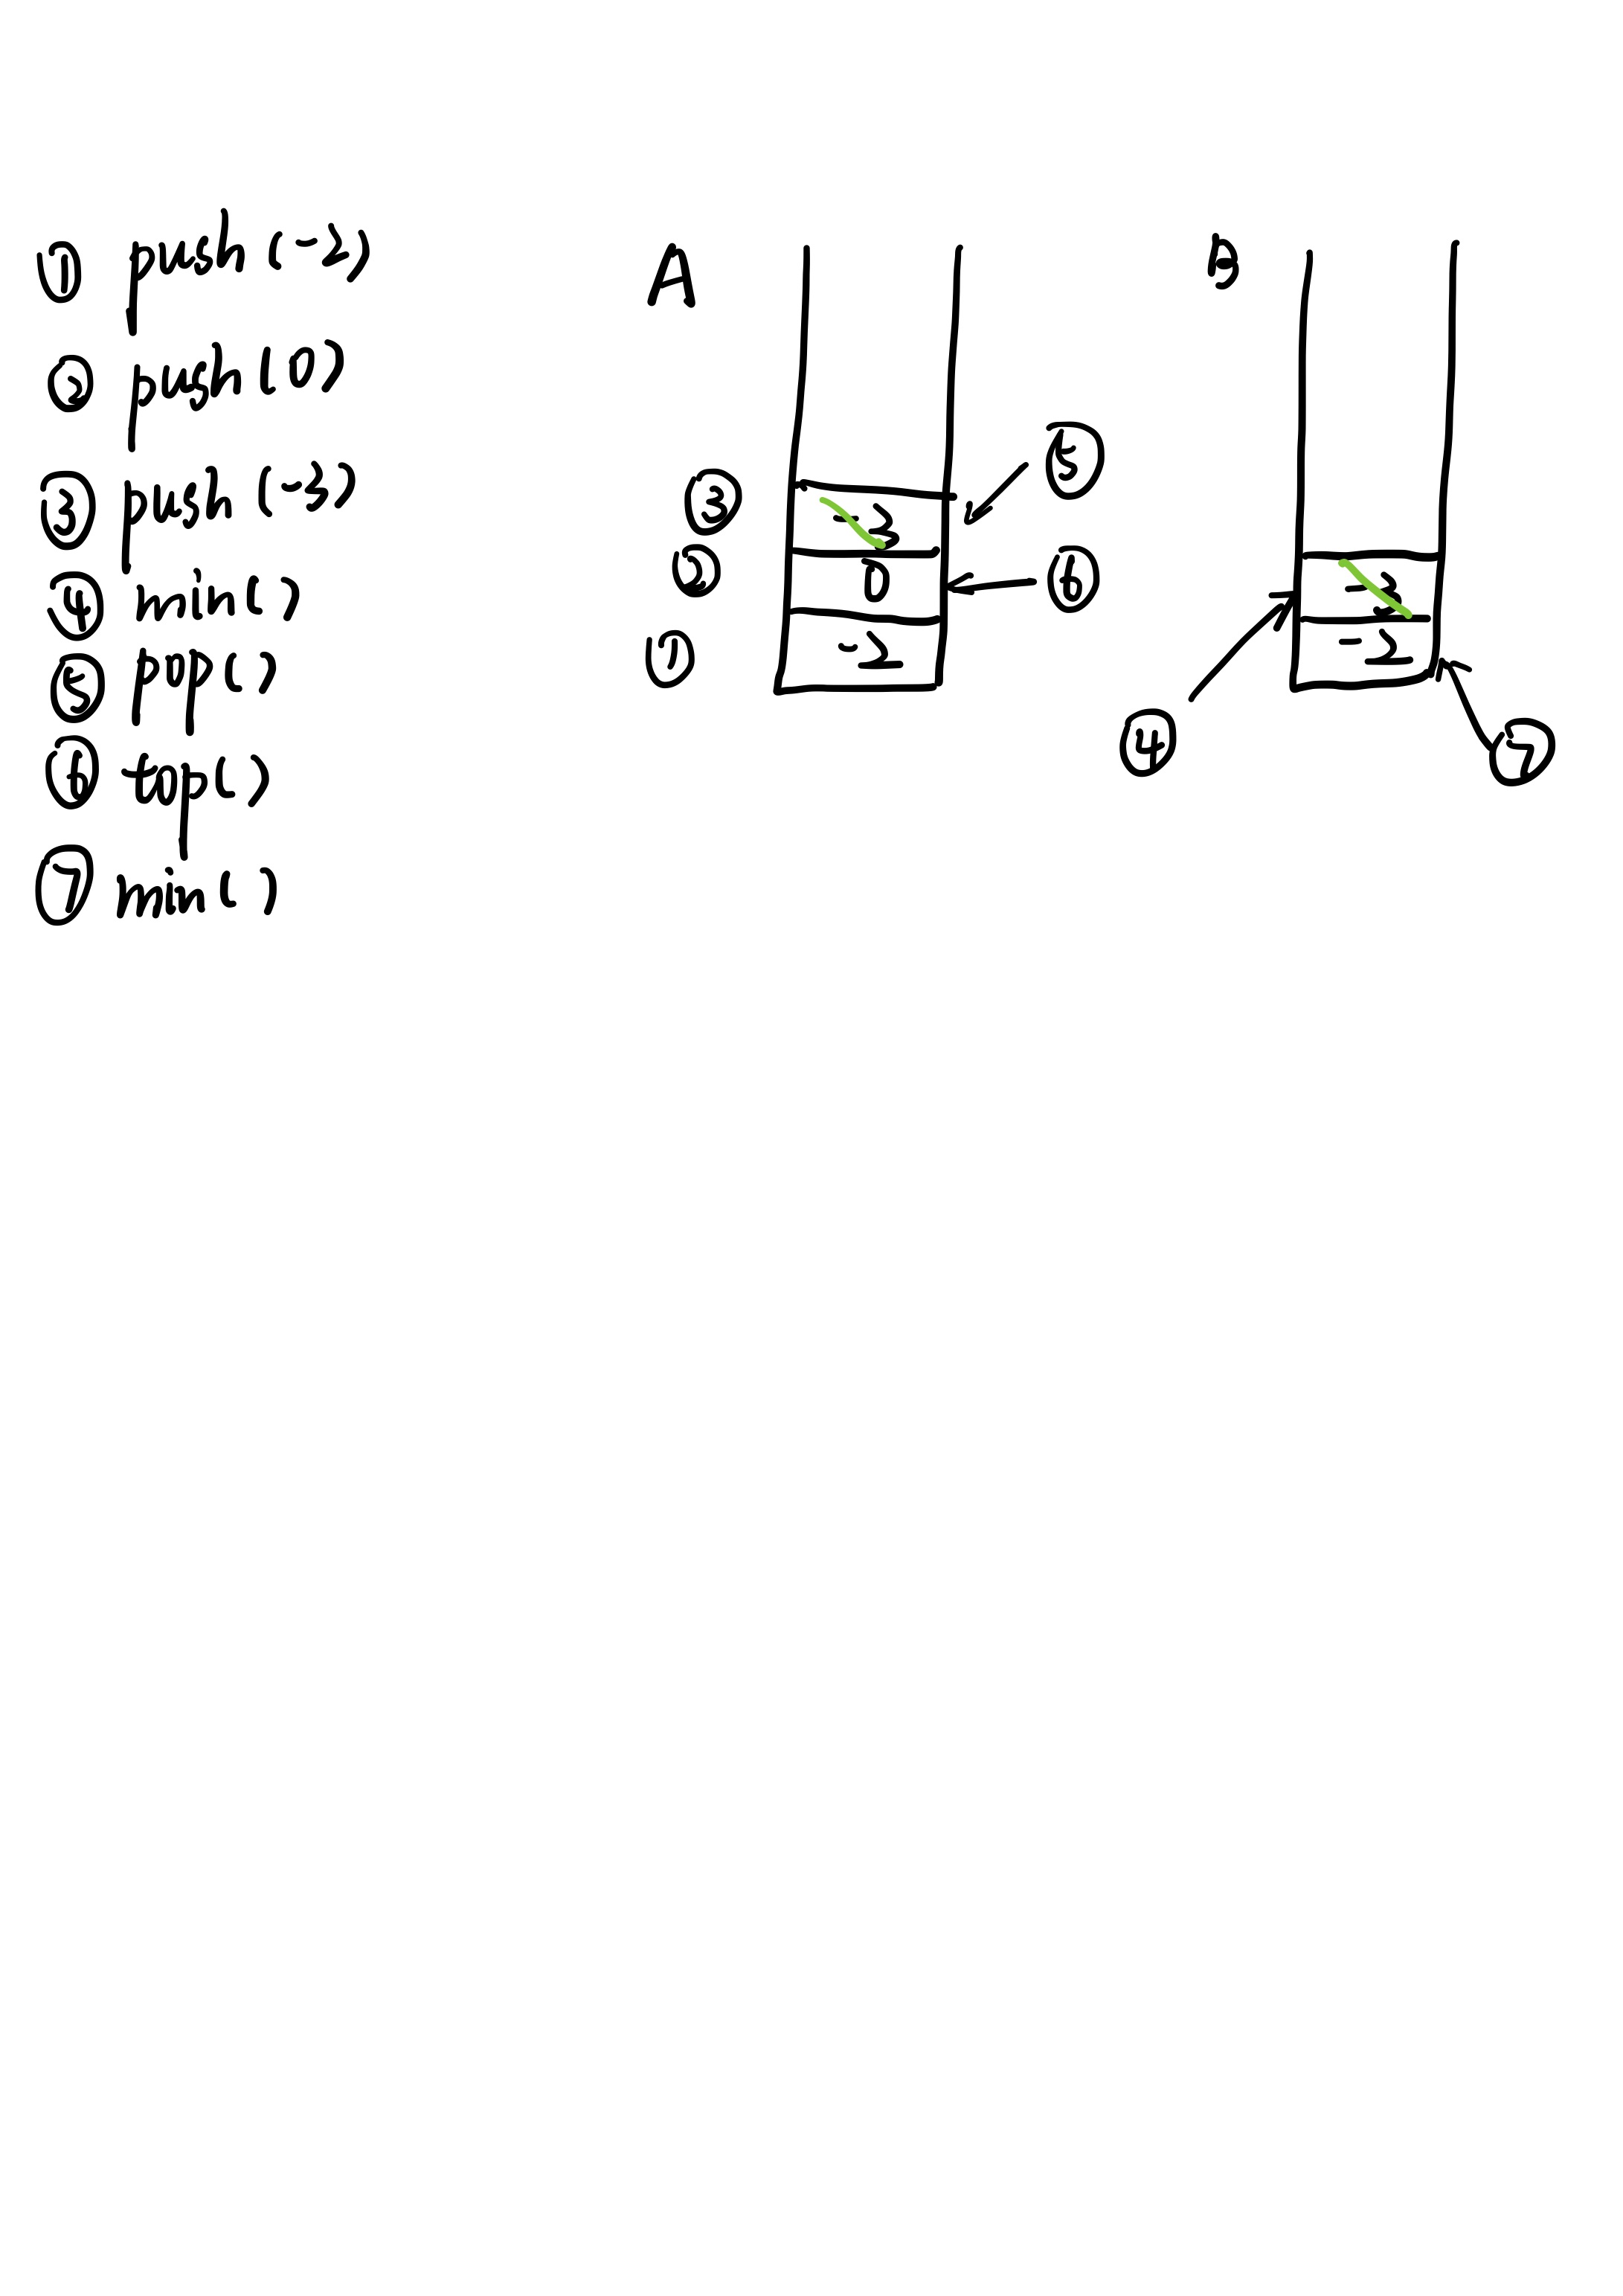 ① push(-2)
② push(0)
③ push(-3)
④ min()
⑤ pop()
⑥ top()
⑦ min()
A
③
②
①
-3
0
-2
⑤
⑥
B
-3
-2
④
⑦